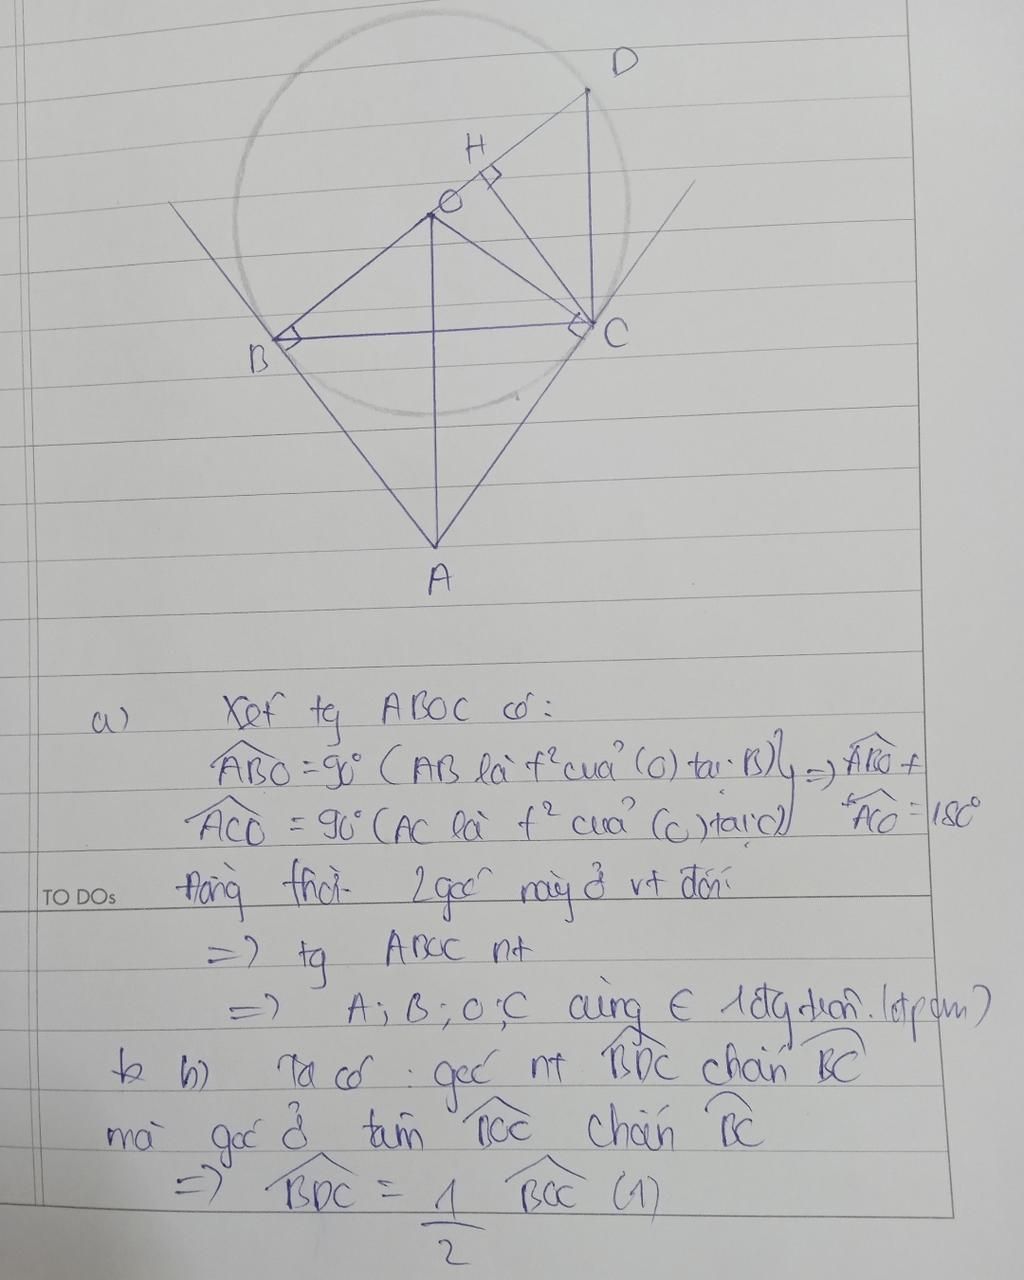 D
H
O
B
C
A
a) Xét tg ABOC có:
ABO = 90° (AB là t² của (O) tại B) } => ABO +
ACO = 90° (AC là t² của (O) tại C) + ACO = 180°
TO DOs Đồng thời 2 góc này ở vt đối
=> tg ABOC nt
=> A; B; O; C cùng ∈ 1 đg tròn (đpcm)
b) Ta có : góc nt BDC chắn BC
mà góc ở tâm BOC chắn BC
=> BDC = 1/2 BOC (1)